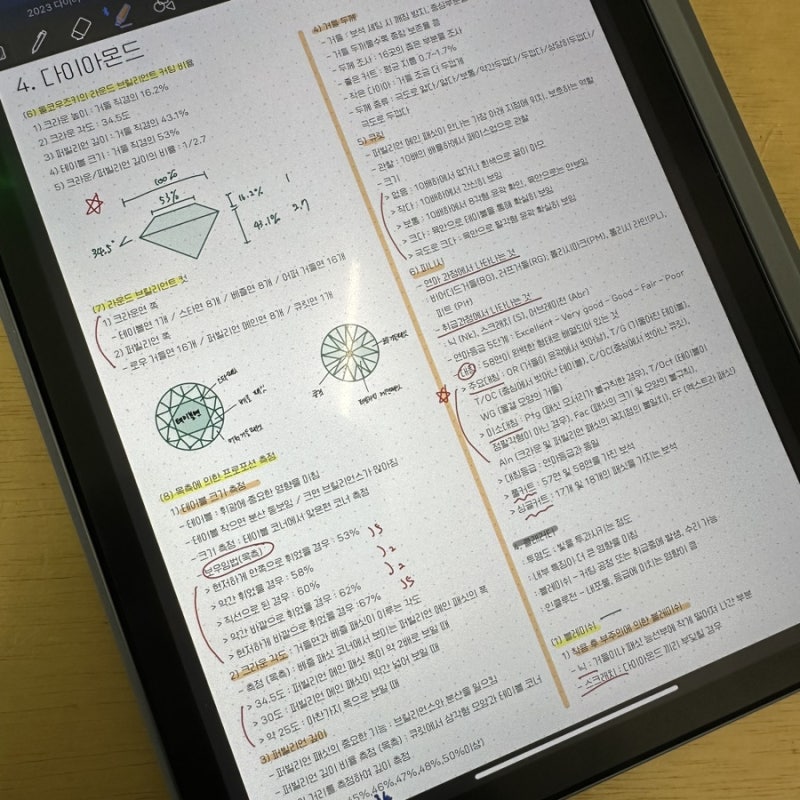 2023 다이아
4. 다이아몬드
(6) 톨코우즈키의 라운드 브릴리언트 커팅 비율
1) 크라운 높이 : 거들 직경의 16.2%
2) 크라운 각도 : 34.5도
3) 퍼빌리언 깊이 : 거들 직경의 43.1%
4) 테이블 크기 : 거들 직경의 53%
5) 크라운/퍼빌리언 깊이의 비율 : 1/2.7
100%
53%
16.2%
1
34.5°
43.1%
2.7
(7) 라운드 브릴리언트 컷
1) 크라운면 쪽
- 테이블면 1개 / 스타면 8개 / 베즐면 8개 / 어퍼 거들면 16개
2) 퍼빌리언 쪽
- 로우 거들면 16개 / 퍼빌리언 메인면 8개 / 큐릿면 1개
테이블면
(8) 목측에 의한 프로포션 측정
1) 테이블 크기 측정
- 테이블 : 휘광에 중요한 영향을 미침
- 테이블 작으면 분산 돋보임 / 크면 브릴리언스가 많아짐
- 크기 측정 : 테이블 코너에서 맞은편 코너 측정
- 보우잉법(목측)
> 현저하게 안쪽으로 휘었을 경우 : 53%
> 약간 휘었을 경우 : 58%
> 직선으로 된 경우 : 60%
> 약간 바깥으로 휘었을 경우 : 62%
> 현저하게 바깥으로 휘었을 경우 : 67%
2) 크라운 각도 : 거들면과 베즐 패싯이 이루는 각도
- 측정 (목측) : 베즐 패싯 코너에서 보이는 퍼빌리언 메인 패싯의 폭
> 34.5도 : 퍼빌리언 메인 패싯 폭이 약 2배로 보일 때
> 30도 : 퍼빌리언 메인 패싯이 약간 넓어 보일 때
> 약 25도 : 마찬가지 폭으로 보일 때
3) 퍼빌리언 깊이
- 퍼빌리언 패싯의 중요한 기능 : 브릴리언스와 분산을 일으킴
- 퍼빌리언 깊이 비율 측정 (목측) : 큐릿에서 삼각형 모양과 테이블 코너
거리를 측정하여 깊이 측정
45%,46%,47%,48%,50%이상)
4) 거들 두께
- 거들 : 보석 세팅 시 깨짐 방지,
- 거들 두꺼울수록 중량 보존율
- 두께 조사 : 16곳의 좁은 부분을 조사
- 좋은 커트 : 평균 지름 0.7~1.7%
- 작은 다이아 : 거들 조금 더 두껍게
- 두께 종류 : 극도로 얇다/얇다/보통/약간두껍다/두껍다/상당히두껍다/
극도로 두껍다
5) 큐릿
- 퍼빌리언 메인 패싯이 만나는 가장 아래 지점에 위치, 보호하는 역할
- 관찰 : 10배의 배율하에서 페이스업으로 관찰
- 크기
> 없음 : 10배하에서 없거나 흰색으로 끝이 마모
> 작다 : 10배하에서 간신히 보임
> 보통 : 10배하에서 8각형 윤곽 확인, 육안으로는 안보임
> 크다 : 육안으로 테이블을 통해 확실히 보임
> 극도로 크다 : 육안으로 팔각형 윤곽 확실히 보임
6) 피니시
- 연마 과정에서 나타나는 것
- 비어디드거들(BG), 러프거들(RG), 폴리시마크(PM), 폴리시 라인(PL),
피트 (Pit)
- 취급과정에서 나타나는 것
- 닉 (Nk), 스크래치 (S), 어브레이젼 (Abr)
- 연마등급 5단계 : Excellent - Very good - Good - Fair - Poor
- 대칭 : 58면이 완벽한 형태로 배열되어 있는 것
> 주요대칭 : OR (거들이 윤곽에서 벗어남), T/G (기울어진 테이블),
T/OC (중심에서 벗어난 테이블), C/OC(중심에서 벗어난 큐릿),
WG (물결 모양의 거들)
> 미소대칭 : Ptg (패싯 모서리가 불규칙한 경우), T/Oct (테이블이
정팔각형이 아닌 경우), Fac (패싯의 크기 및 모양의 불규칙),
Aln (크라운 및 퍼빌리언 패싯의 꼭지점의 불일치), EF (엑스트라 패싯)
> 대칭등급 : 연마등급과 동일
> 풀커트 : 57면 및 58면을 가진 보석
> 싱글커트 : 17개 및 18개의 패싯을 가지는 보석
- 투명도 : 빛을 투과시키는 정도
: 내부 특징이 더 큰 영향을 미침
: 블레미쉬 - 커팅 공정 또는 취급중에 발생, 수리 가능
: 인클루전 - 내포물, 등급에 미치는 영향이 큼
(1) 블레미쉬
1) 착용 후 부주의에 의한 블레미쉬
- 닉 : 거들이나 패싯 능선부에 작게 떨어져 나간 부분
- 스크래치 : 다이아몬드 끼리 부딪칠 경우